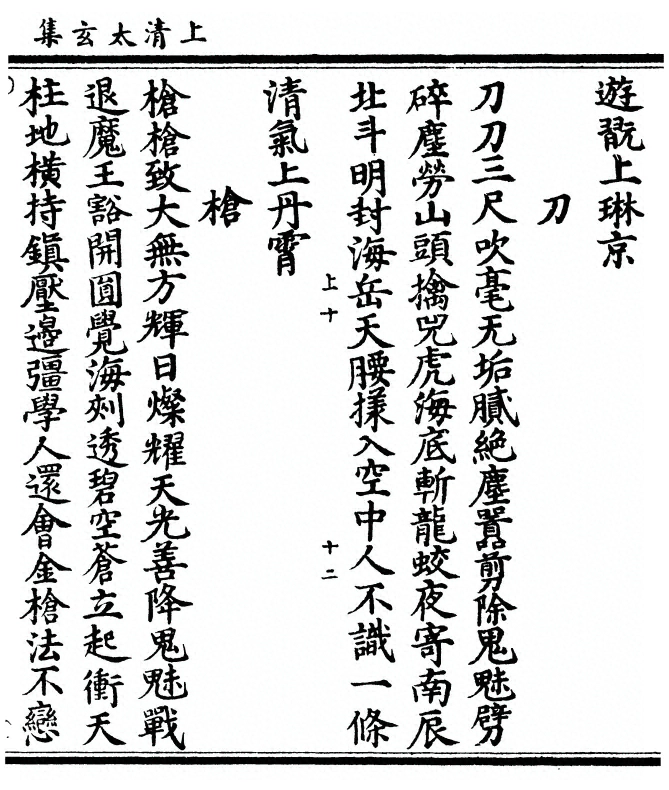 上清太玄集
遊翫上琳京
刀
刀刀三尺吹毫无垢膩絶塵嚣剪除鬼魅劈
碎塵勞山頭擒兕虎海底斬龍蛟夜寄南辰
北斗明封海岳天腰撁入空中人不識一條
清氣上丹霄
上十
十二
槍
槍槍致大無方輝日燦耀天光善降鬼魅戰
退魔王豁開圎覺海刾透碧空蒼立起衝天
柱地橫持鎭壓邉彊學人還會金槍法不戀